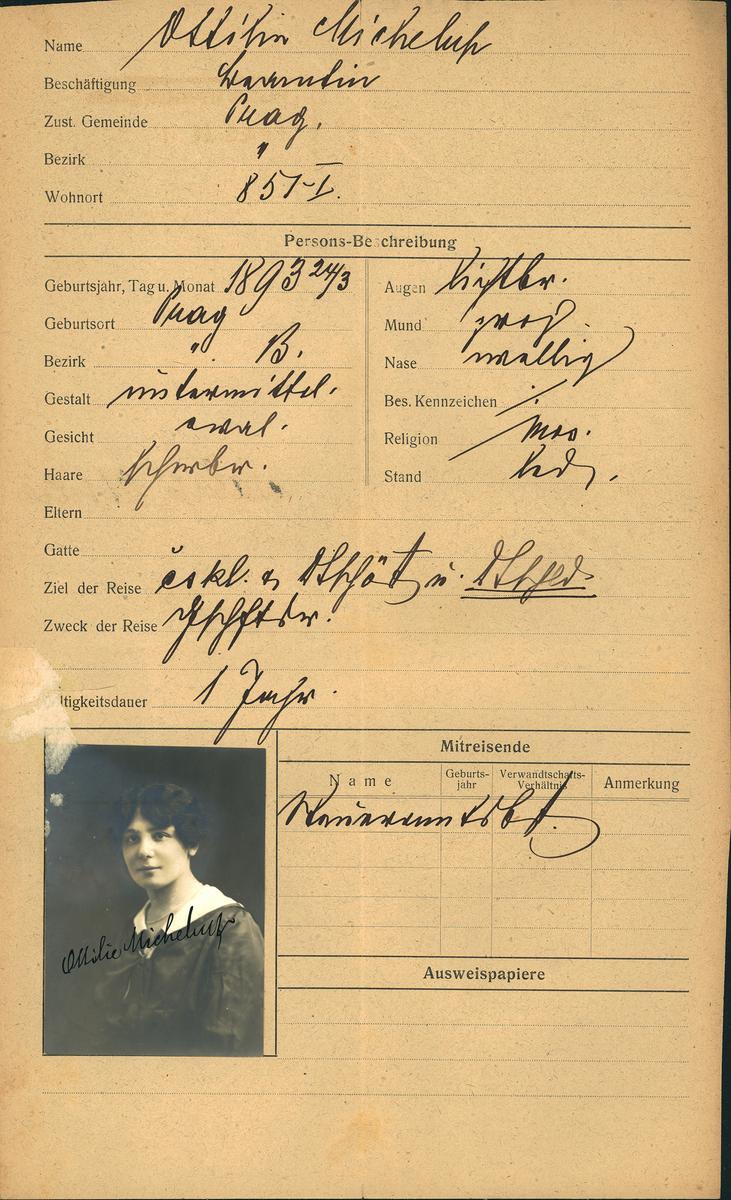 Name Ottilie Michelup
Beschäftigung Beamtin
Zust. Gemeinde Prag.
Bezirk "
Wohnort 851-I.
Persons-Beschreibung
Geburtsjahr, Tag u. Monat 1893 24/3
Geburtsort Prag
Bezirk " B.
Gestalt untermittel.
Gesicht oval.
Haare schwbr.
Augen lichtbr.
Mund groß.
Nase wellig
Bes. Kennzeichen
Religion mos.
Stand led.
Eltern
Gatte
Ziel der Reise čskl. u.
Zweck der Reise
ltigkeitsdauer 1 Jahr.
Mitreisende
Name
Geburts-
jahr
Verwandtschafts-
Verhältnis
Anmerkung
Steueramtsbst.
Ausweispapiere
Ottilie Michelup